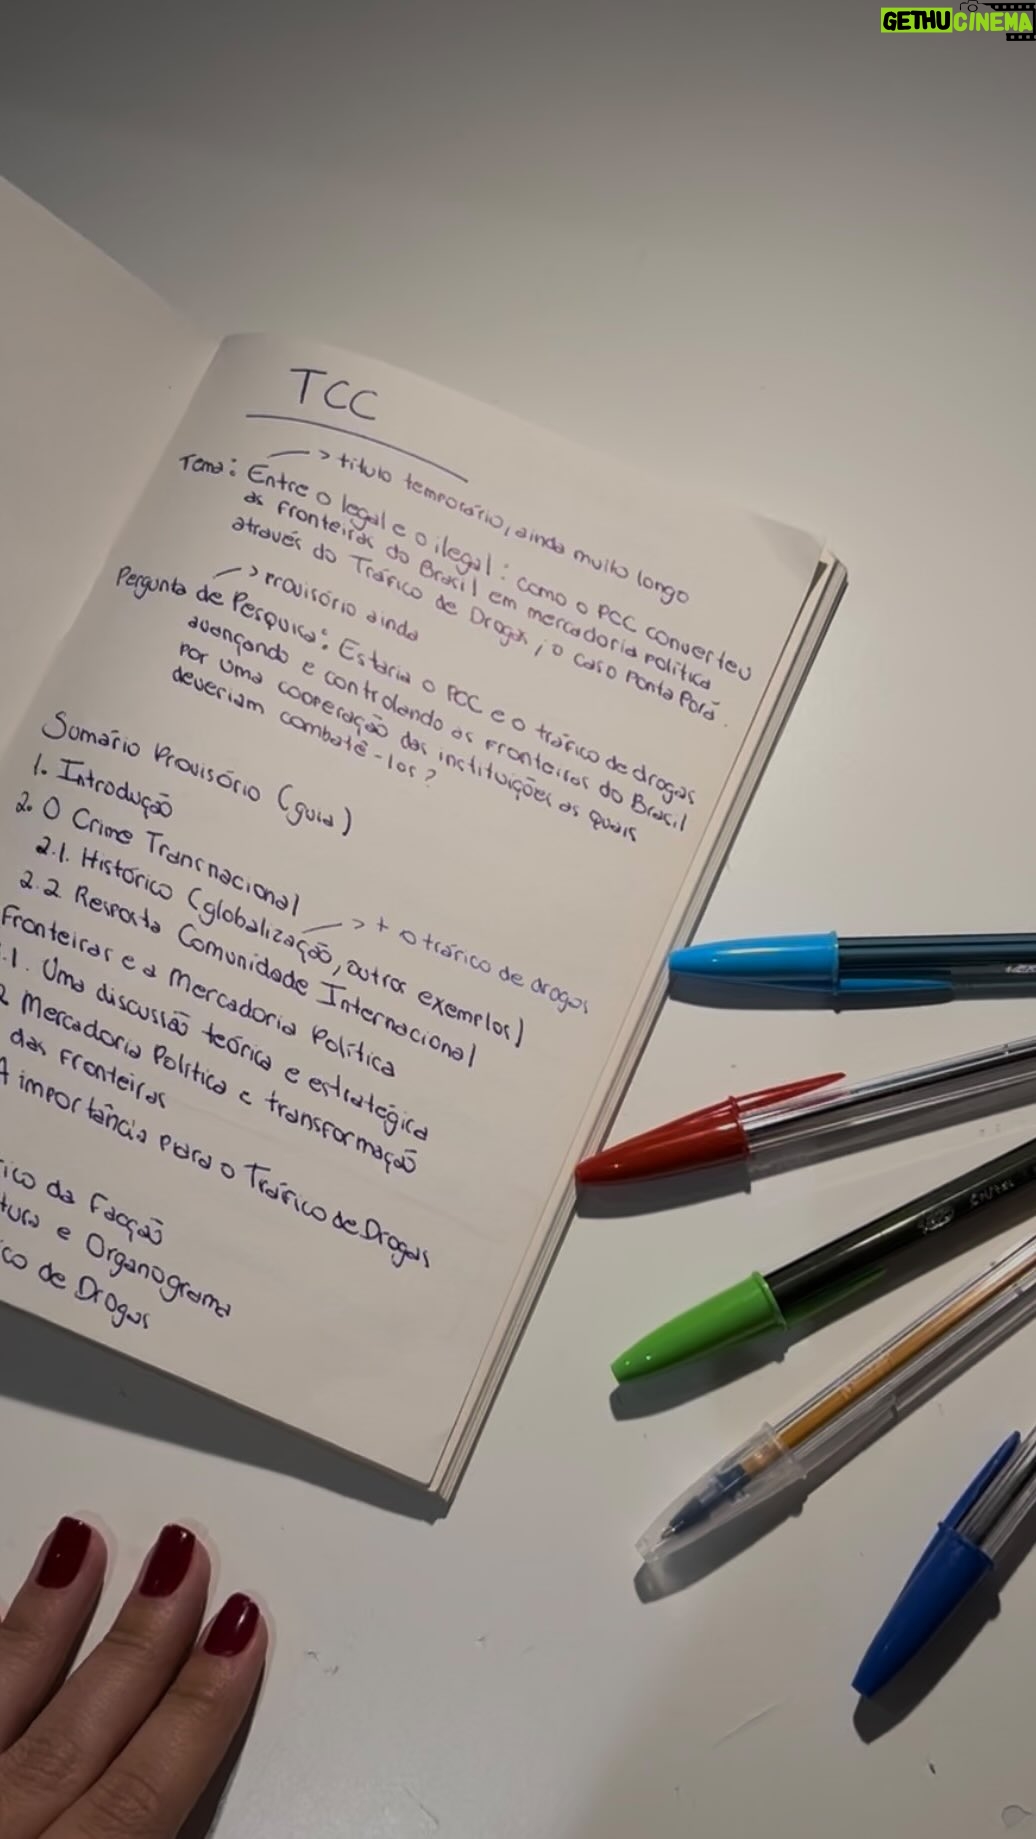 GETHUCINEMA
TCC
→ título temporário, ainda muito longo
Tema: Entre o legal e o ilegal: como o PCC converteu
as fronteiras do Brasil em mercadoria política
através do Tráfico de Drogas; o caso Ponta Porã.
→ Provisório ainda
Pergunta de Pesquisa: Estaria o PCC e o tráfico de drogas
avançando e controlando as fronteiras do Brasil
por uma cooperação das instituições as quais
deveriam combatê-los?
Sumário Provisório (guia)
1. Introdução
2. O Crime Transnacional
→ + o tráfico de drogas
2.1. Histórico (globalização, outros exemplos)
2.2 Resposta Comunidade Internacional
Fronteiras e a Mercadoria Política
.1. Uma discussão teórica e estratégica
2 Mercadoria Política e transformação
das fronteiras
A importância para o Tráfico de Drogas
ico da Facção
tura e Organograma
ico de Drogas